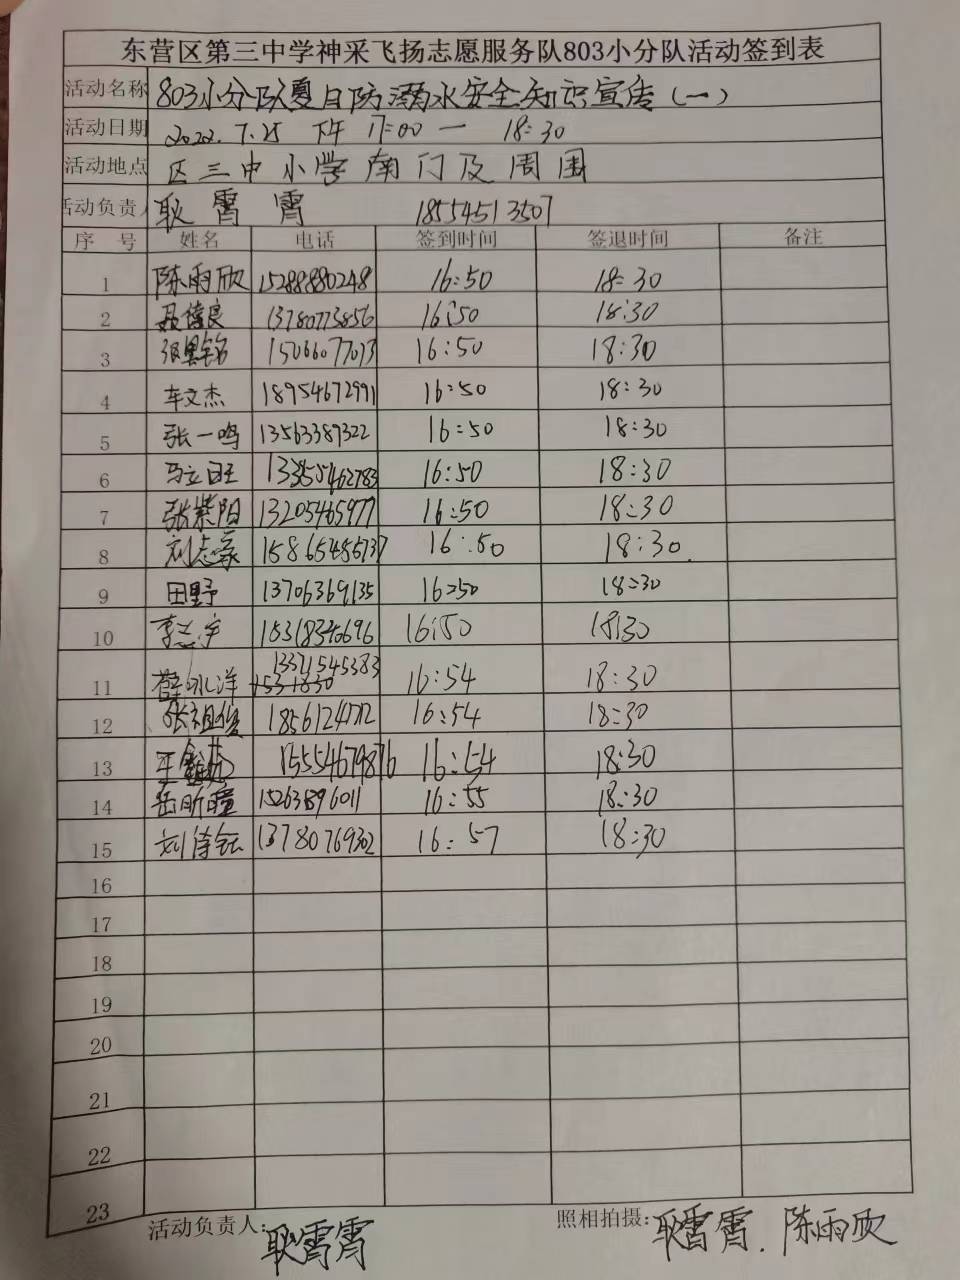 东营区第三中学神采飞扬志愿服务队803小分队活动签到表
活动名称 803小分队夏日防溺水安全知识宣传(一)
活动日期 2022.7.25 下午 17:00 — 18:30
活动地点 区三中小学南门及周围
活动负责人 耿霄霄 18554513507
序号 姓名 电话 签到时间 签退时间 备注
1 陈雨欣 15288880248 16:50 18:30
2 13780773856 16:50 18:30
3 15066077073 16:50 18:30
4 车文杰 18954672991 16:50 18:30
5 张一鸣 13563389322 16:50 18:30
6 16:50 18:30
7 张紫阳 13205465977 16:50 18:30
8 刘志豪 16:50 18:30.
9 田野 13706369135 16:50 18:30
10 李志宇 15318340696 16:50 18:30
11 13371545383 16:54 18:30
12 张祖俊 16:54 18:30
13 15554679876 16:54 18:30
14 岳昕瞳 15263896011 16:55 18:30
15 13780769302 16:57 18:30
16
17
18
19
20
21
22
23
活动负责人: 耿霄霄 照相拍摄: 耿霄霄. 陈雨欣